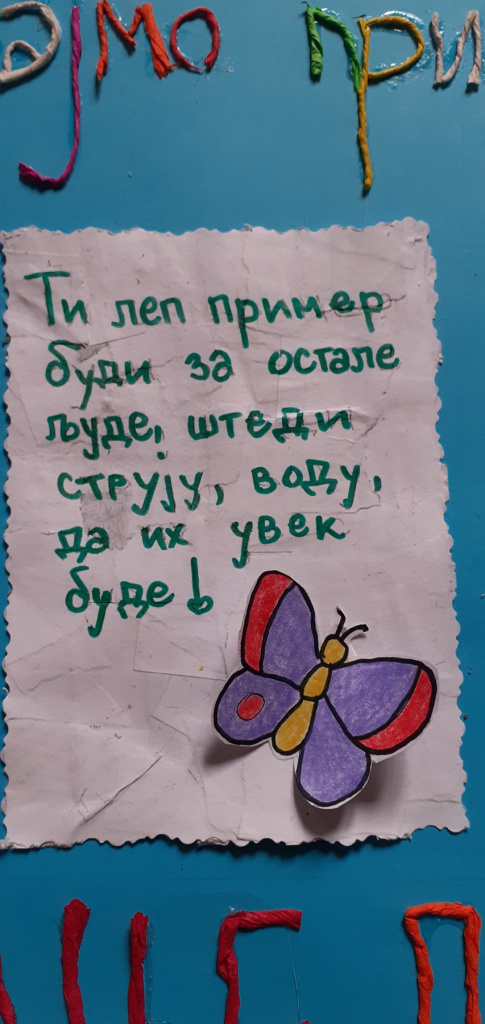 ајмо при
Ти леп пример
буди за остале
људе, штеди
струју, воду,
да их увек
буде!